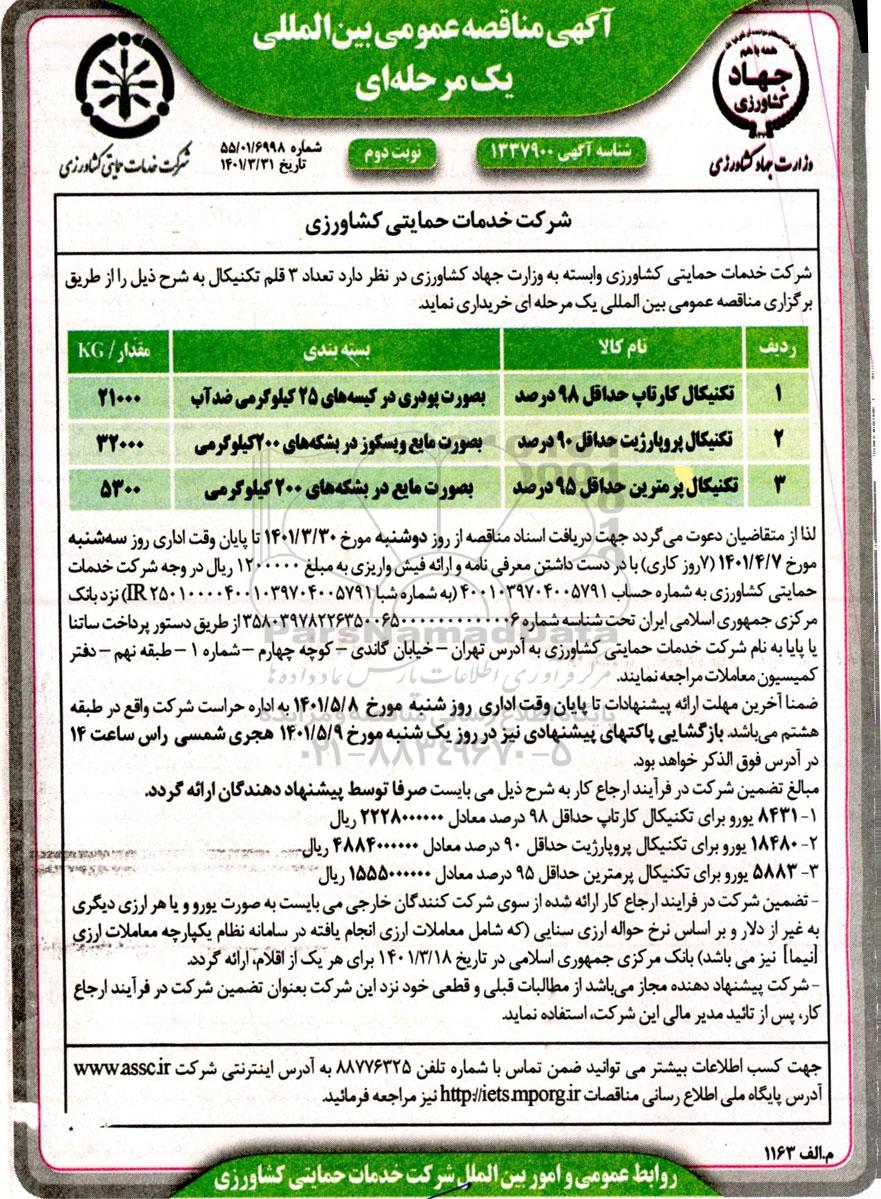 آگهی مناقصه عمومی بین‌المللی
یک مرحله‌ای
همه با هم
جهاد
کشاورزی
وزارت جهاد کشاورزی
شناسه آگهی ۱۳۳۷۹۰۰
نوبت دوم
شماره ۵۵/۰۱/۶۹۹۸
تاریخ ۱۴۰۱/۳/۳۱
شرکت خدمات حمایتی کشاورزی
شرکت خدمات حمایتی کشاورزی
شرکت خدمات حمایتی کشاورزی وابسته به وزارت جهاد کشاورزی در نظر دارد تعداد ۳ قلم تکنیکال به شرح ذیل را از طریق
برگزاری مناقصه عمومی بین المللی یک مرحله ای خریداری نماید.
ردیف نام کالا بسته بندی مقدار/ KG
۱ تکنیکال کارتاپ حداقل ۹۸ درصد بصورت پودری در کیسه‌های ۲۵ کیلوگرمی ضدآب ۲۱۰۰۰
۲ تکنیکال پروپارژیت حداقل ۹۰ درصد بصورت مایع ویسکوز در بشکه‌های ۲۰۰کیلوگرمی ۳۲۰۰۰
۳ تکنیکال پرمترین حداقل ۹۵ درصد بصورت مایع در بشکه‌های ۲۰۰ کیلوگرمی ۵۳۰۰
لذا از متقاضیان دعوت می‌گردد جهت دریافت اسناد مناقصه از روز دوشنبه مورخ ۱۴۰۱/۳/۳۰ تا پایان وقت اداری روز سه‌شنبه
مورخ ۱۴۰۱/۴/۷ (۷روز کاری) با در دست داشتن معرفی نامه و ارائه فیش واریزی به مبلغ ۱۲۰۰۰۰۰ ریال در وجه شرکت خدمات
حمایتی کشاورزی به شماره حساب ۴۰۰۱۰۳۹۷۰۴۰۰۵۷۹۱ (به شماره شبا IR ۲۵۰۱۰۰۰۰۴۰۰۱۰۳۹۷۰۴۰۰۵۷۹۱) نزد بانک
مرکزی جمهوری اسلامی ایران تحت شناسه شماره از طریق دستور پرداخت ساتنا
یا پایا به نام شرکت خدمات حمایتی کشاورزی به آدرس تهران – خیابان گاندی – کوچه چهارم – شماره ۱ – طبقه نهم – دفتر
کمیسیون معاملات مراجعه نمایند.
ضمنا آخرین مهلت ارائه پیشنهادات تا پایان وقت اداری روز شنبه مورخ ۱۴۰۱/۵/۸ به اداره حراست شرکت واقع در طبقه
هشتم می‌باشد. بازگشایی پاکتهای پیشنهادی نیز در روز یک شنبه مورخ ۱۴۰۱/۵/۹ هجری شمسی راس ساعت ۱۴
در آدرس فوق الذکر خواهد بود.
مبالغ تضمین شرکت در فرآیند ارجاع کار به شرح ذیل می بایست صرفا توسط پیشنهاد دهندگان ارائه گردد.
۱- ۸۴۳۱ یورو برای تکنیکال کارتاپ حداقل ۹۸ درصد معادل ۲۲۲۸۰۰۰۰۰۰ ریال
۲- ۱۸۴۸۰ یورو برای تکنیکال پروپارژیت حداقل ۹۰ درصد معادل ۴۸۸۴۰۰۰۰۰۰ ریال
۳- ۵۸۸۳ یورو برای تکنیکال پرمترین حداقل ۹۵ درصد معادل ۱۵۵۵۰۰۰۰۰۰ ریال
- تضمین شرکت در فرایند ارجاع کار ارائه شده از سوی شرکت کنندگان خارجی می بایست به صورت یورو و یا هر ارزی دیگری
به غیر از دلار و بر اساس نرخ حواله ارزی سنایی (که شامل معاملات ارزی انجام یافته در سامانه نظام یکپارچه معاملات ارزی
[نیما] نیز می باشد) بانک مرکزی جمهوری اسلامی در تاریخ ۱۴۰۱/۳/۱۸ برای هر یک از اقلام، ارائه گردد.
- شرکت پیشنهاد دهنده مجاز می‌باشد از مطالبات قبلی و قطعی خود نزد این شرکت بعنوان تضمین شرکت در فرآیند ارجاع
کار، پس از تائید مدیر مالی این شرکت، استفاده نماید.
جهت کسب اطلاعات بیشتر می توانید ضمن تماس با شماره تلفن ۸۸۷۷۶۳۲۵ به آدرس اینترنتی شرکت www.assc.ir
آدرس پایگاه ملی اطلاع رسانی مناقصات http://iets.mporg.ir نیز مراجعه فرمائید.
م.الف ۱۱۶۳
روابط عمومی و امور بین الملل شرکت خدمات حمایتی کشاورزی
ParsNamadData
مرکز فرآوری اطلاعات پارس نماد داده ها
پایگاه اطلاع رسانی مناقصه و مزایده
۰۲۱-۸۸۳۴۹۶۷۰-۵